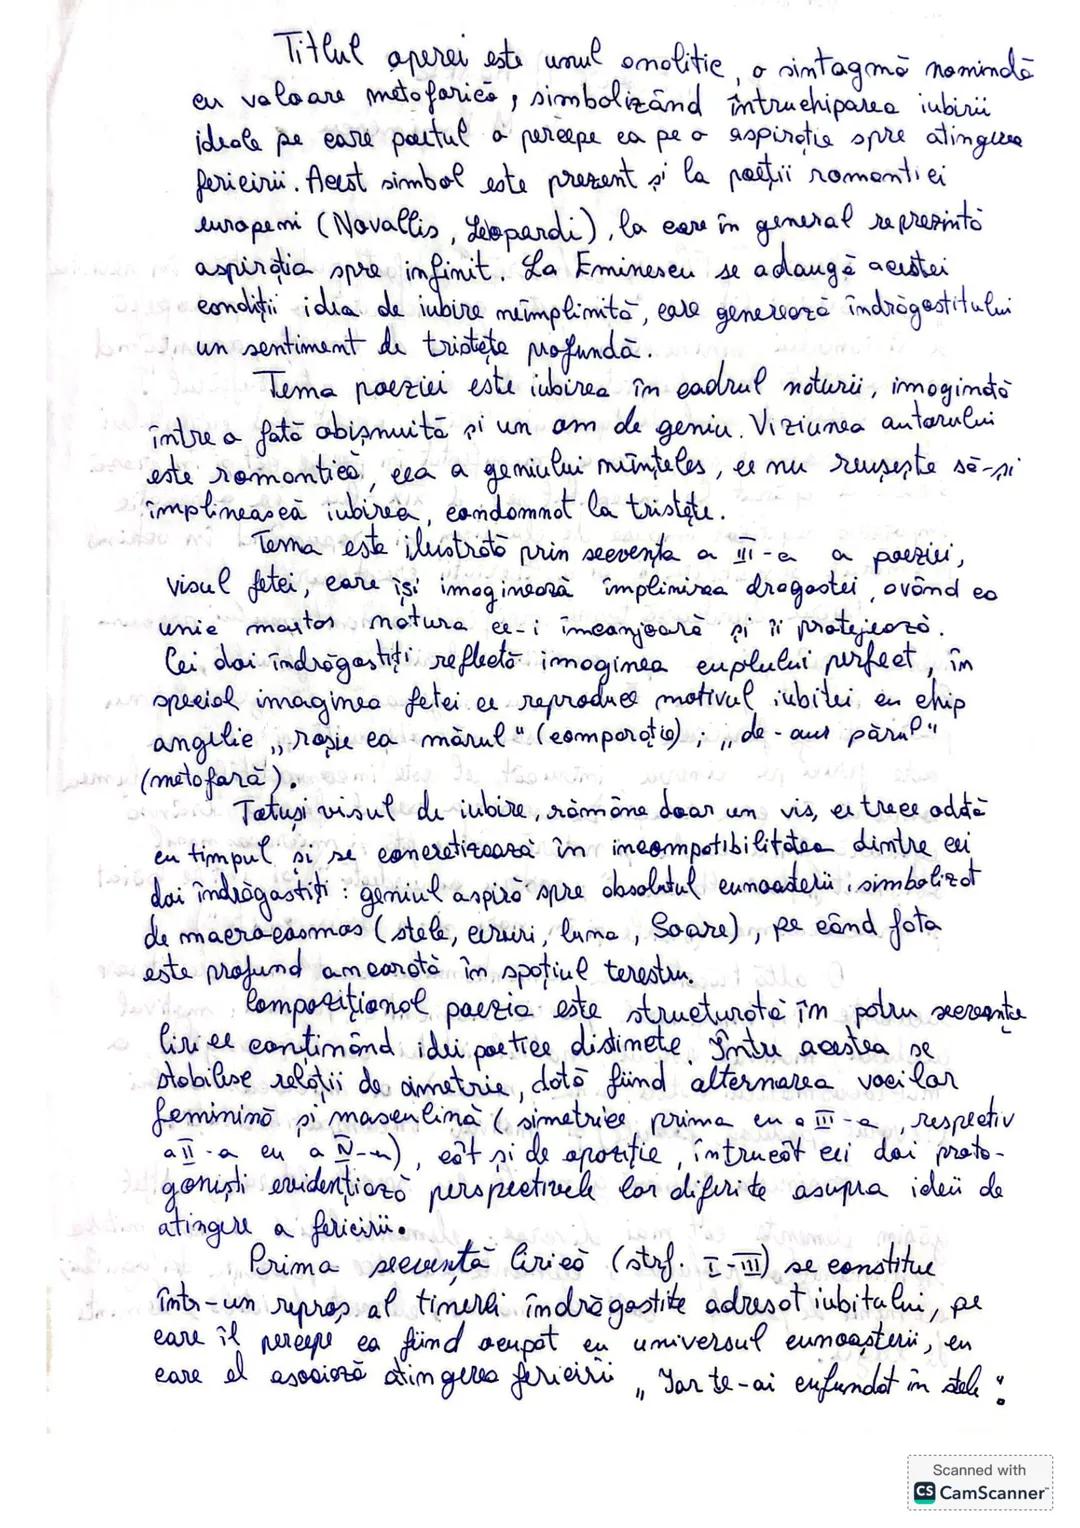 Titlul operei este unul analitic, o sintagmă nomindă
cu valoare metaforică, simbolizând întruchiparea iubirii
ideale pe care poetul o percepe ca pe o aspirație spre atingerea
fericirii. Acest simbol este prezent și la poeții romantici
europeni (Novallis, Leopardi), la care în general reprezintă
aspirația spre infinit. La Eminescu se adaugă acestei
condiții ideea de iubire neîmplinită, care generează îndrăgostitului
un sentiment de tristețe profundă.
Tema poeziei este iubirea în cadrul naturii, imaginată
între o fată obișnuită și un om de geniu. Viziunea autorului
este romantică, cea a geniului neînțeles, ce nu reușește să-și
împlinească iubirea, condamnat la tristețe.
Tema este ilustrată prin secvența a III-a a poeziei,
visul fetei, care își imaginează împlinirea dragostei, având ca
unic martor natura ce-i înconjoară și îi protejează.
Cei doi îndrăgostiți reflectă imaginea cuplului perfect, în
special imaginea fetei ce reproduce motivul iubitei cu chip
angelic „roșie ca mărul" (comparație); „de-aur părul"
(metaforă).
Totuși visul de iubire, rămâne doar un vis, ce trece odată
cu timpul și se concretizează în incompatibilitatea dintre cei
doi îndrăgostiți: geniul aspiră spre absolutul cunoașterii, simbolizat
de macrocosmos (stele, ceruri, luna, Soare), pe când fata
este profund ancorată în spațiul terestru.
Compozițional poezia este structurată în patru secvențe
lirice conținând idei poetice distincte. Între acestea se
stabilesc relații de simetrie, dată fiind alternarea vocilor
feminină și masculină (simetrice prima cu a III-a, respectiv
a II-a cu a IV-a), cât și de opoziție, întrucât cei doi prota-
goniști evidențiază perspectivele lor diferite asupra ideii de
atingere a fericirii.
Prima secvență lirică (strf. I-III) se constitue
într-un reproș al tinerei îndrăgostite adresat iubitului, pe
care îl percepe ca fiind ocupat cu universul cunoașterii, cu
care el asociază atingerea fericirii „Iar te-ai cufundat în stele":
Scanned with
CS CamScanner